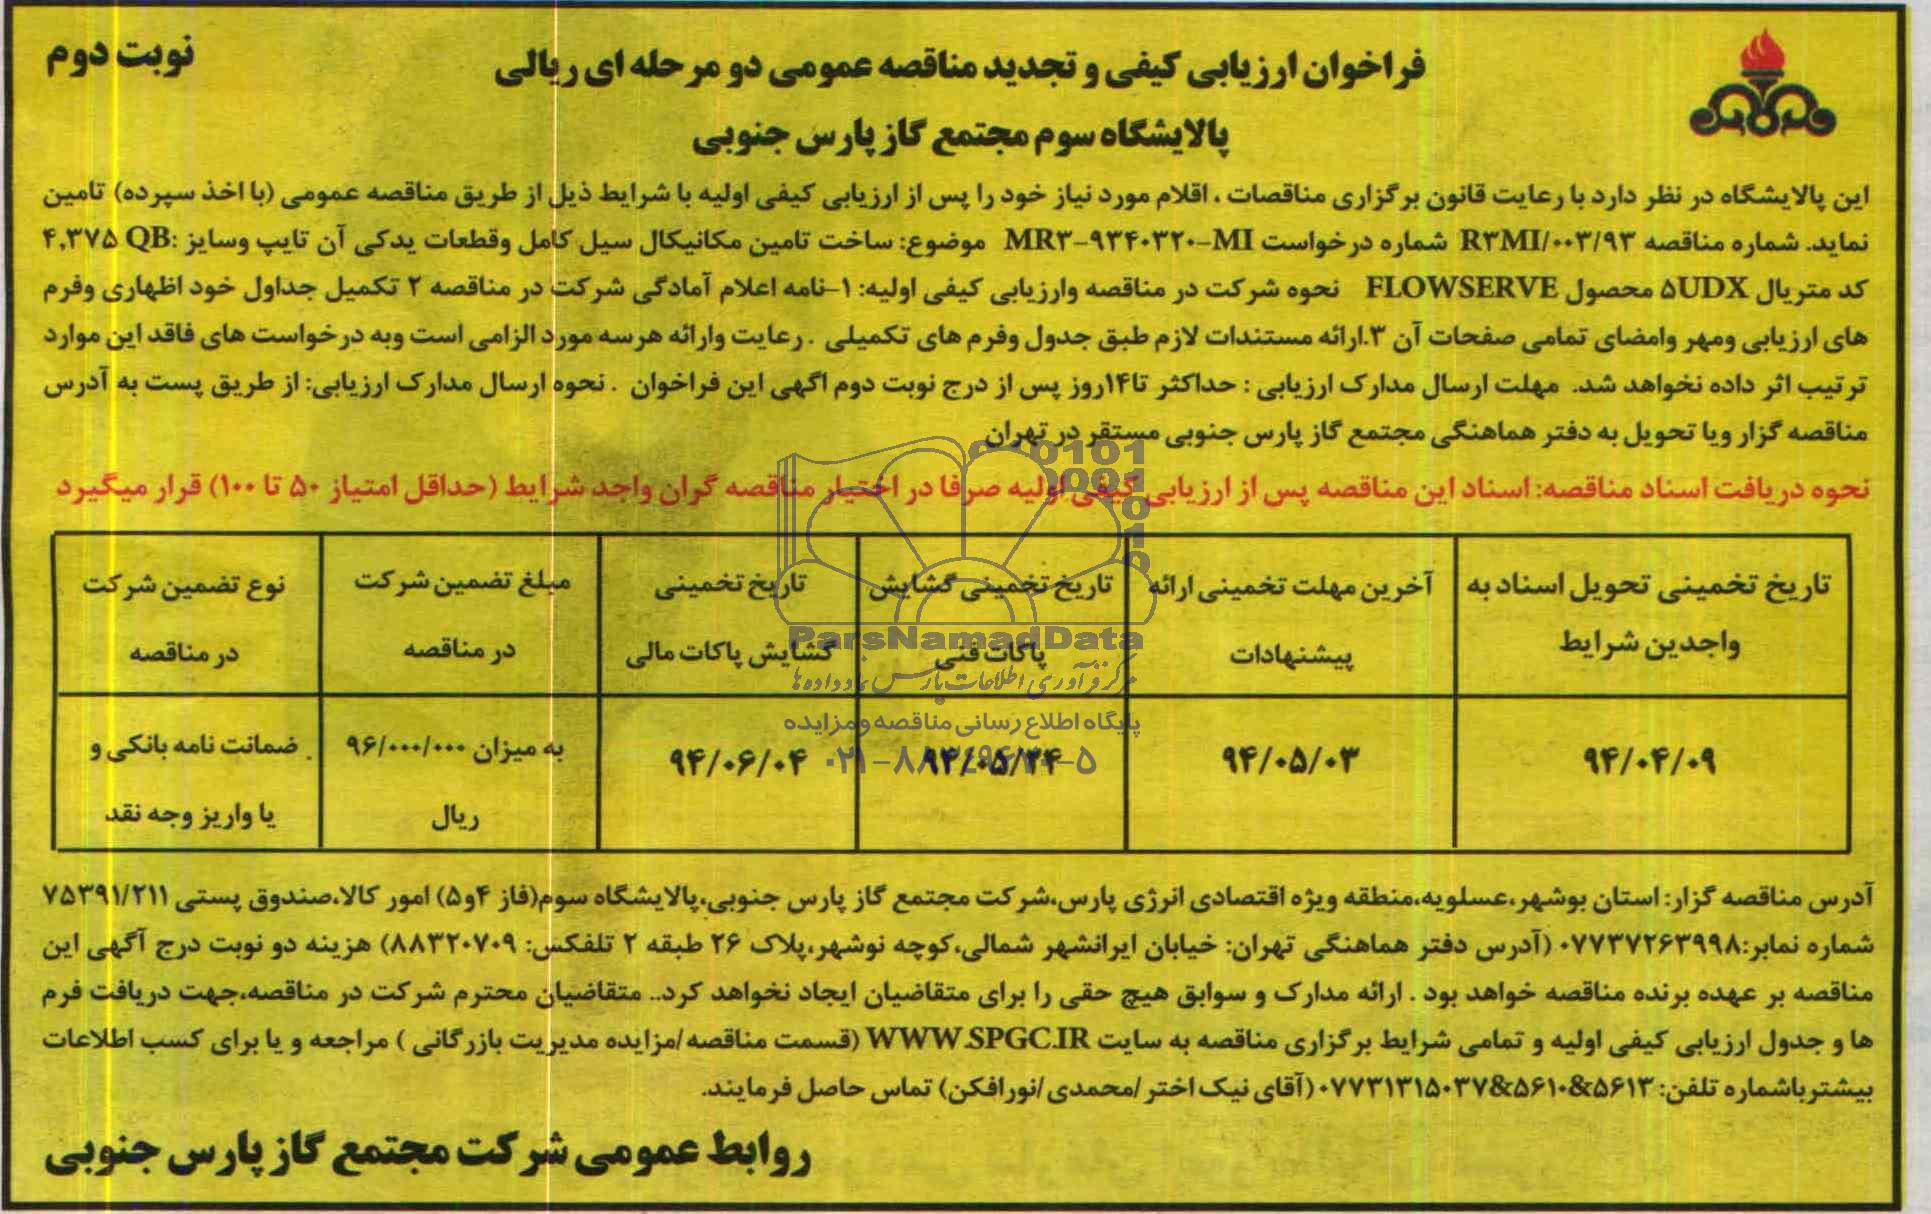 نوبت دوم
فراخوان ارزیابی کیفی و تجدید مناقصه عمومی دو مرحله ای ریالی
پالایشگاه سوم مجتمع گاز پارس جنوبی
این پالایشگاه در نظر دارد با رعایت قانون برگزاری مناقصات ، اقلام مورد نیاز خود را پس از ارزیابی کیفی اولیه با شرایط ذیل از طریق مناقصه عمومی (با اخذ سپرده) تامین
نماید. شماره مناقصه R۳MI/۰۰۳/۹۳ شماره درخواست MR۳-۹۳۴۰۳۲۰-MI موضوع: ساخت تامین مکانیکال سیل کامل وقطعات یدکی آن تایپ وسایز :QB ۴,۳۷۵
کد متریال ۵UDX محصول FLOWSERVE نحوه شرکت در مناقصه وارزیابی کیفی اولیه: ۱-نامه اعلام آمادگی شرکت در مناقصه ۲ تکمیل جداول خود اظهاری وفرم
های ارزیابی ومهر وامضای تمامی صفحات آن ۳.ارائه مستندات لازم طبق جدول وفرم های تکمیلی . رعایت وارائه هرسه مورد الزامی است وبه درخواست های فاقد این موارد
ترتیب اثر داده نخواهد شد. مهلت ارسال مدارک ارزیابی : حداکثر تا۱۴روز پس از درج نوبت دوم اگهی این فراخوان . نحوه ارسال مدارک ارزیابی: از طریق پست به آدرس
مناقصه گزار ویا تحویل به دفتر هماهنگی مجتمع گاز پارس جنوبی مستقر در تهران
نحوه دریافت اسناد مناقصه: اسناد این مناقصه پس از ارزیابی کیفی اولیه صرفا در اختیار مناقصه گران واجد شرایط (حداقل امتیاز ۵۰ تا ۱۰۰) قرار میگیرد
تاریخ تخمینی تحویل اسناد به واجدین شرایط
آخرین مهلت تخمینی ارائه پیشنهادات
تاریخ تخمینی گشایش پاکات فنی
تاریخ تخمینی گشایش پاکات مالی
مبلغ تضمین شرکت در مناقصه
نوع تضمین شرکت در مناقصه
۹۴/۰۴/۰۹
۹۴/۰۵/۰۳
۹۴/۰۵/۲۴
۹۴/۰۶/۰۴
به میزان ۹۶/۰۰۰/۰۰۰ ریال
ضمانت نامه بانکی و یا واریز وجه نقد
ParsNamadData
مرکز فرآوری اطلاعات پارس نماد داده ها
پایگاه اطلاع رسانی مناقصه و مزایده
آدرس مناقصه گزار: استان بوشهر،عسلویه،منطقه ویژه اقتصادی انرژی پارس،شرکت مجتمع گاز پارس جنوبی،پالایشگاه سوم(فاز ۴و۵) امور کالا،صندوق پستی ۷۵۳۹۱/۲۱۱
شماره نمابر:۰۷۷۳۷۲۶۳۹۹۸ (آدرس دفتر هماهنگی تهران: خیابان ایرانشهر شمالی،کوچه نوشهر،پلاک ۲۶ طبقه ۲ تلفکس: ۸۸۳۲۰۷۰۹) هزینه دو نوبت درج آگهی این
مناقصه بر عهده برنده مناقصه خواهد بود . ارائه مدارک و سوابق هیچ حقی را برای متقاضیان ایجاد نخواهد کرد.. متقاضیان محترم شرکت در مناقصه،جهت دریافت فرم
ها و جدول ارزیابی کیفی اولیه و تمامی شرایط برگزاری مناقصه به سایت WWW.SPGC.IR (قسمت مناقصه/مزایده مدیریت بازرگانی ) مراجعه و یا برای کسب اطلاعات
بیشترباشماره تلفن: ۰۷۷۳۱۳۱۵۰۳۷&۵۶۱۰&۵۶۱۳ (آقای نیک اختر /محمدی/نورافکن) تماس حاصل فرمایند.
روابط عمومی شرکت مجتمع گاز پارس جنوبی